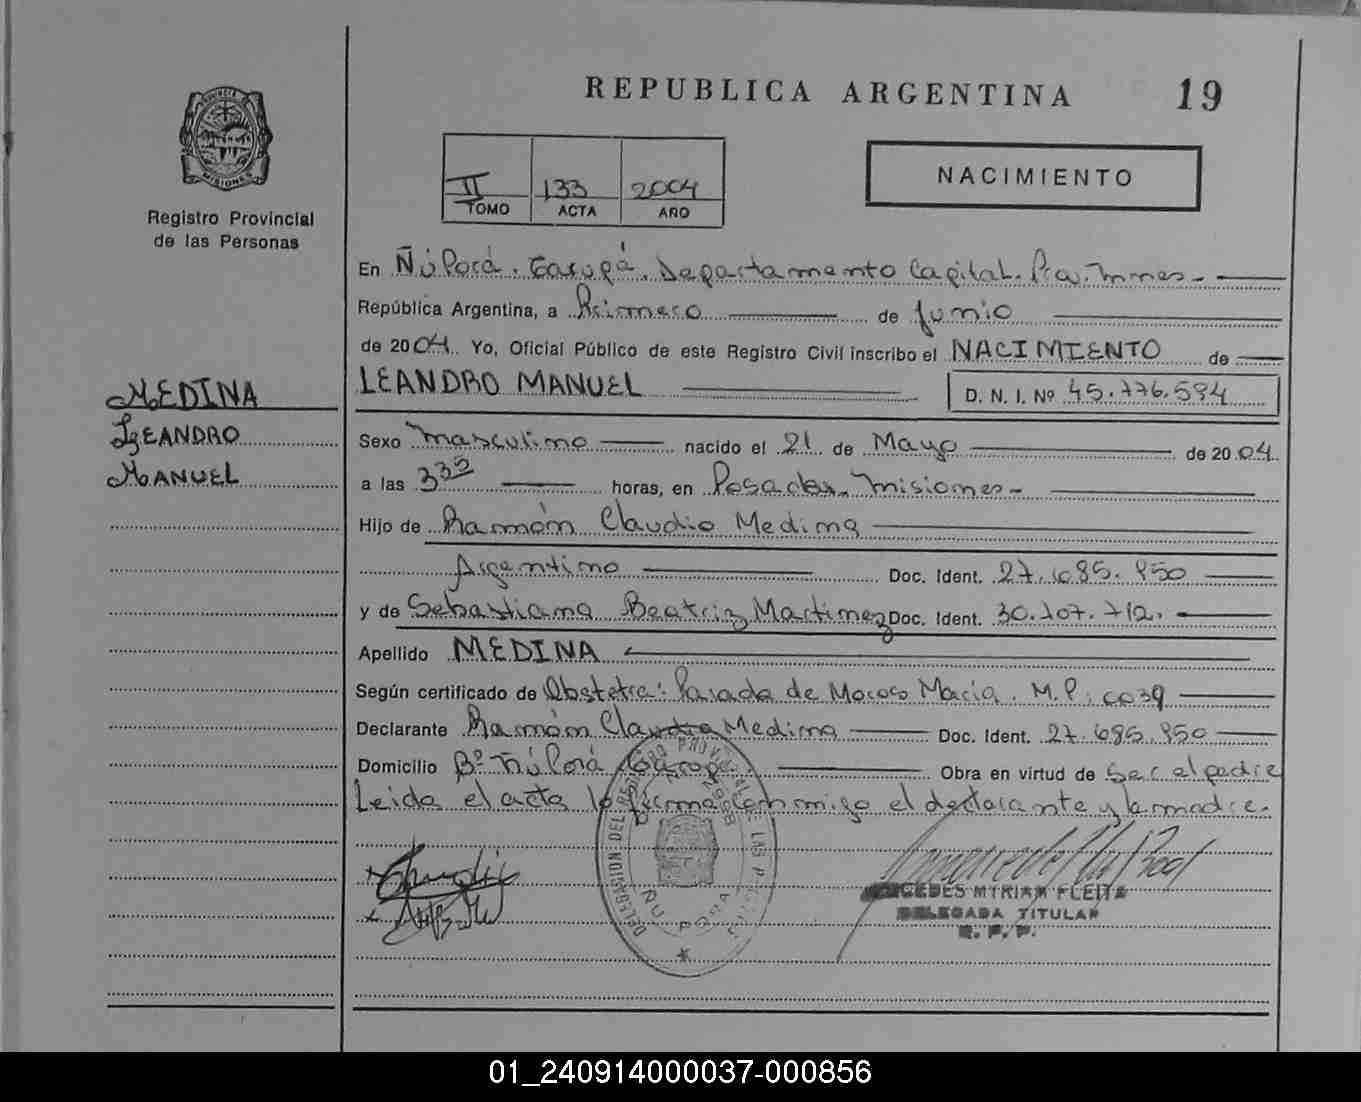 REPUBLICA ARGENTINA 19
PROVINCIA DE
MISIONES
Registro Provincial
de las Personas
II 133 2004
TOMO ACTA AÑO
NACIMIENTO
En Ñú Porá. Garupá. Departamento Capital. Prov. Mnes-
República Argentina, a Primero de Junio
de 2004. Yo, Oficial Público de este Registro Civil inscribo el NACIMIENTO de
LEANDRO MANUEL D. N. I. Nº 45.776.594
MEDINA
LEANDRO
MANUEL
Sexo masculino nacido el 21 de Mayo de 2004
a las 3 35 horas, en Posadas, Misiones-
Hijo de Ramón Claudio Medina
Argentino Doc. Ident. 27.685.950
y de Sebastiana Beatriz Martinez Doc. Ident. 30.707.712.
Apellido MEDINA
Según certificado de Obstetra: Parada de Moroco Maria. M.P: 0039
Declarante Ramón Claudio Medina Doc. Ident. 27.685.950
Domicilio Bº Ñú Porá Garupá Obra en virtud de ser el padre
Leida el acta la firma conmigo el declarante y la madre.
DELEGACION DEL REGISTRO PROVINCIAL DE LAS PERSONAS
ÑU PORA
MERCEDES MYRIAM FLEITA
DELEGADA TITULAR
R. P. P.
01_240914000037-000856